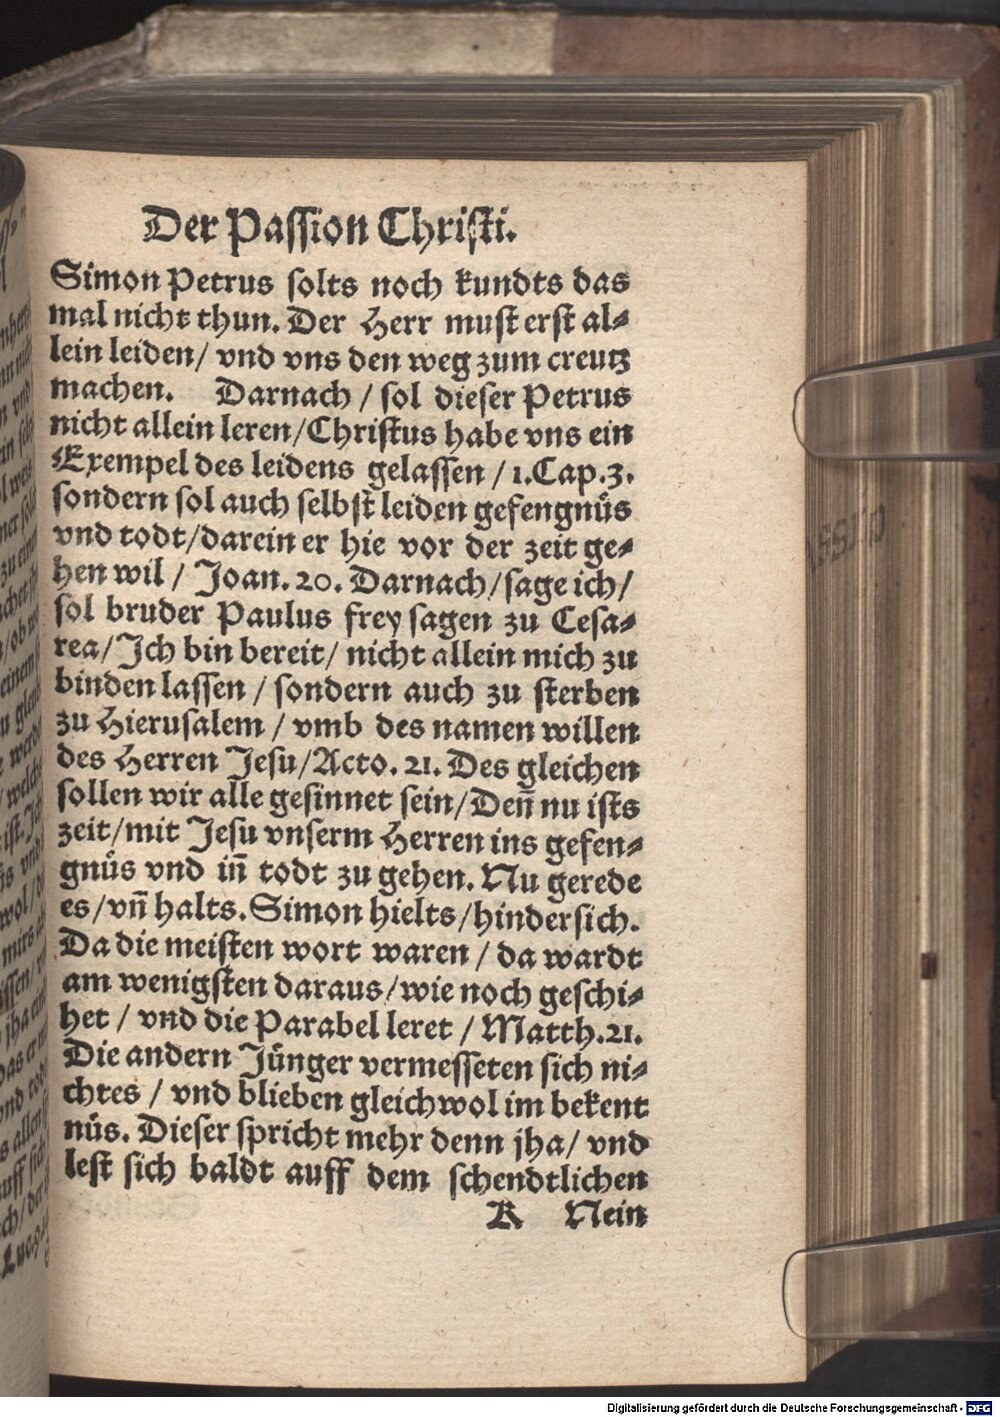 Der Passion Christi.
Simon Petrus solts noch kundts das
mal nicht thun. Der Herr must erst al⸗
lein leiden/ vnd vns den weg zum creutz
machen. Darnach / sol dieser Petrus
nicht allein leren/Christus habe vns ein
Exempel des leidens gelassen / 1.Cap.3.
sondern sol auch selbst leiden gefengnüs
vnd todt/darein er hie vor der zeit ge⸗
hen wil / Joan. 20. Darnach/sage ich/
sol bruder Paulus frey sagen zu Cesa⸗
rea/Ich bin bereit/ nicht allein mich zu
binden lassen / sondern auch zu sterben
zu Hierusalem / vmb des namen willen
des Herren Jesu/Acto. 21. Des gleichen
sollen wir alle gesinnet sein/Deñ nu ists
zeit/mit Jesu vnserm Herren ins gefen⸗
gnüs vnd iñ todt zu gehen. Nu gerede
es/vñ halts. Simon hielts/hindersich.
Da die meisten wort waren / da wardt
am wenigsten daraus/wie noch geschi⸗
het / vnd die Parabel leret / Matth.21.
Die andern Jünger vermesseten sich ni⸗
chtes / vnd blieben gleichwol im bekent
nüs. Dieser spricht mehr denn jha/ vnd
lest sich baldt auff dem schendtlichen
K Nein
Digitalisierung gefördert durch die Deutsche Forschungsgemeinschaft - DFG